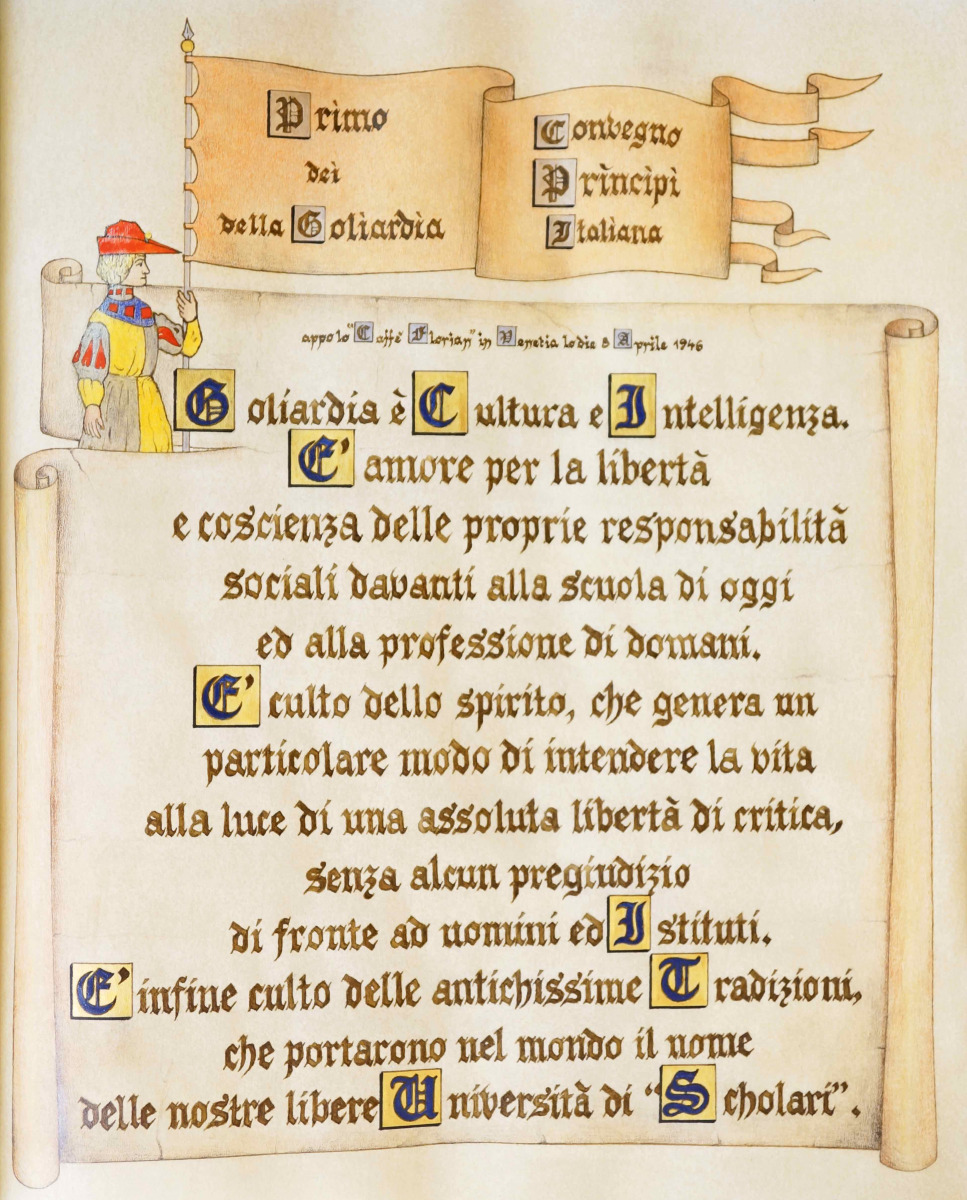 Primo Convegno
dei Principi
della Goliardia Italiana
appo lo "Caffè Florian" in Venetia lo die 8 Aprile 1946
Goliardia è Cultura e Intelligenza.
E' amore per la libertà
e coscienza delle proprie responsabilità
sociali davanti alla scuola di oggi
ed alla professione di domani.
E' culto dello spirito, che genera un
particolare modo di intendere la vita
alla luce di una assoluta libertà di critica,
senza alcun pregiudizio
di fronte ad uomini ed Istituti.
E' infine culto delle antichissime Tradizioni,
che portarono nel mondo il nome
delle nostre libere Università di "Scholari".